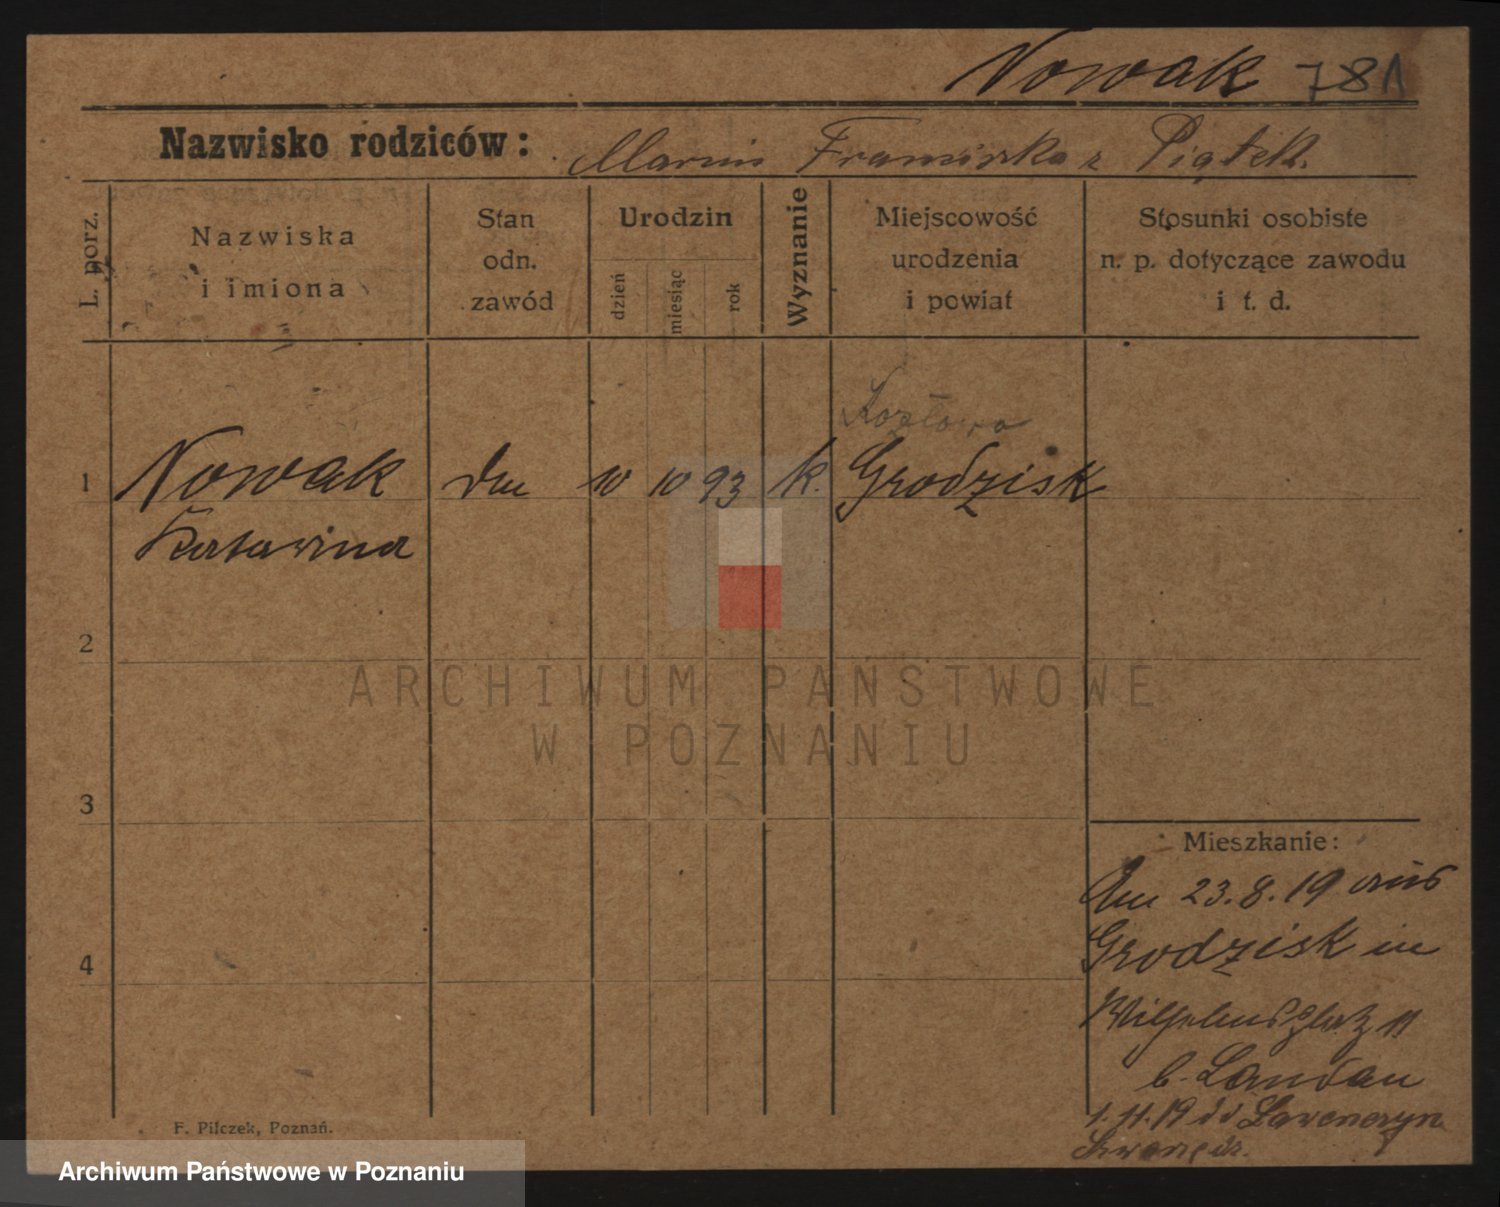 Nowak 781
Nazwisko rodziców: Marcin Franciszka z Piątek.
L. porz.
Nazwiska
i imiona
Stan
odn.
zawód
Urodzin
dzień
miesiąc
rok
Wyznanie
Miejscowość
urodzenia
i powiat
Stosunki osobiste
n. p. dotyczące zawodu
i t. d.
Kozłowo
1 Nowak 10 10 93 k. Grodzisk
Katarina
2
ARCHIWUM PAŃSTWOWE
W POZNANIU
3
Mieszkanie:
Am 23.8.19 aus
Grodzisk in
4
Wilhelmsplatz 11
b. Landau
1.11.19 do
F. Pilczek, Poznań.
Archiwum Państwowe w Poznaniu